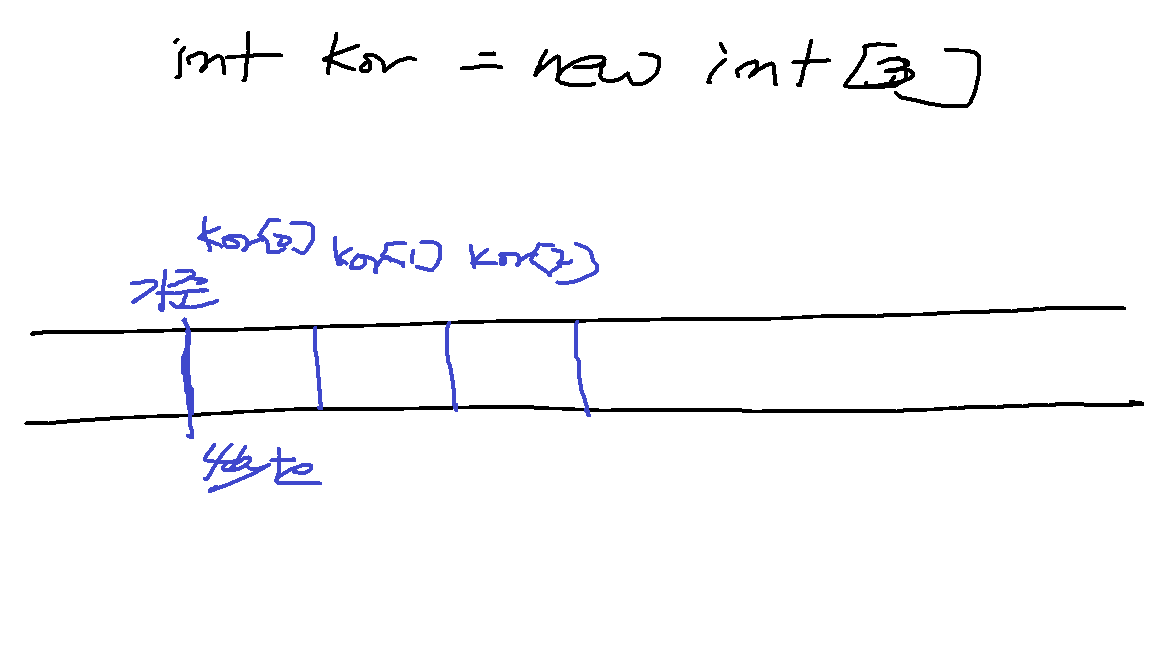 int kor = new int[3]
kor[0] kor[1] kor[2]
기준
4byte